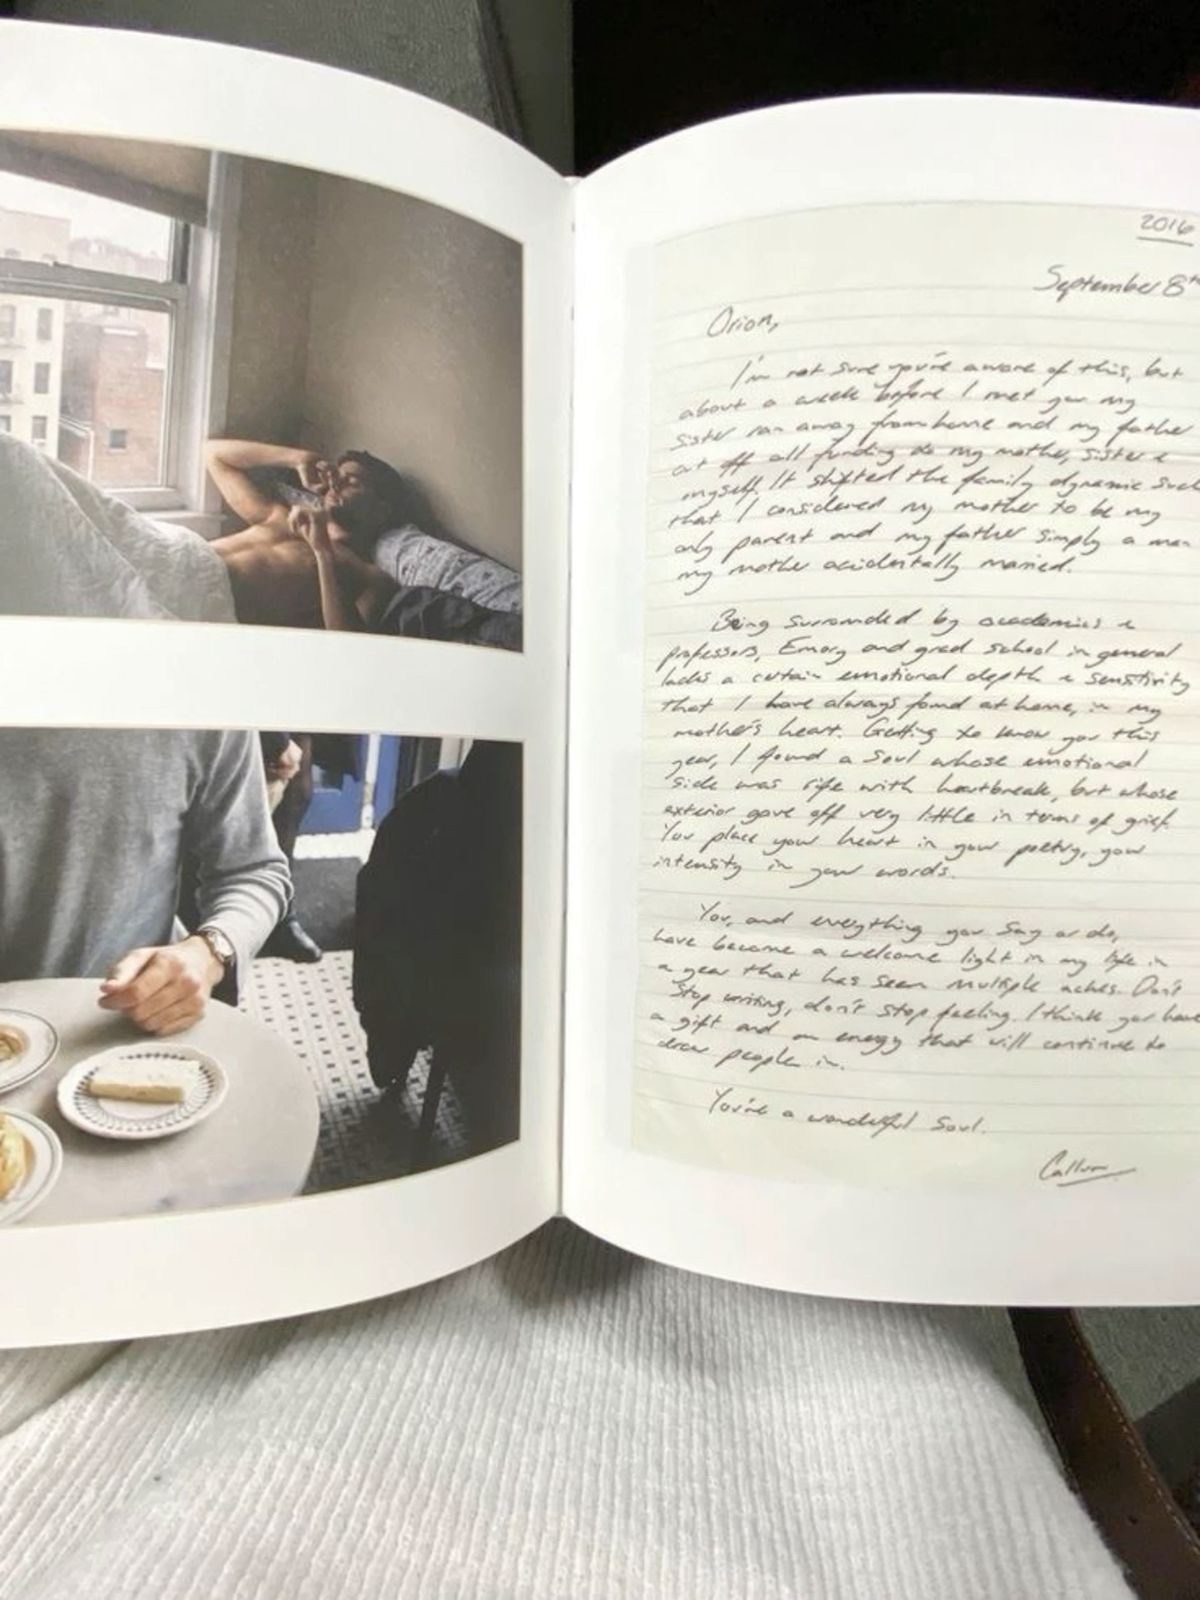 2016
September 8th
Orion,
I'm not sure you're aware of this, but
about a week before I met you my
sister ran away from home and my father
cut off all funding to my mother, sister &
myself. It shifted the family dynamic such
that I considered my mother to be my
only parent and my father simply a man
my mother accidentally married.
Being surrounded by academics &
professors, Emory and grad school in general
lacks a certain emotional depth & sensitivity
that I have always found at home, in my
mother's heart. Getting to know you this
year, I found a soul whose emotional
side was rife with heartbreak, but whose
exterior gave off very little in terms of grief.
You place your heart in your poetry, your
intensity in your words.
You, and everything you say or do,
have become a welcome light in my life in
a year that has seen multiple aches. Don't
stop writing, don't stop feeling. I think you have
a gift and an energy that will continue to
draw people in.
You're a wonderful soul.
Callum